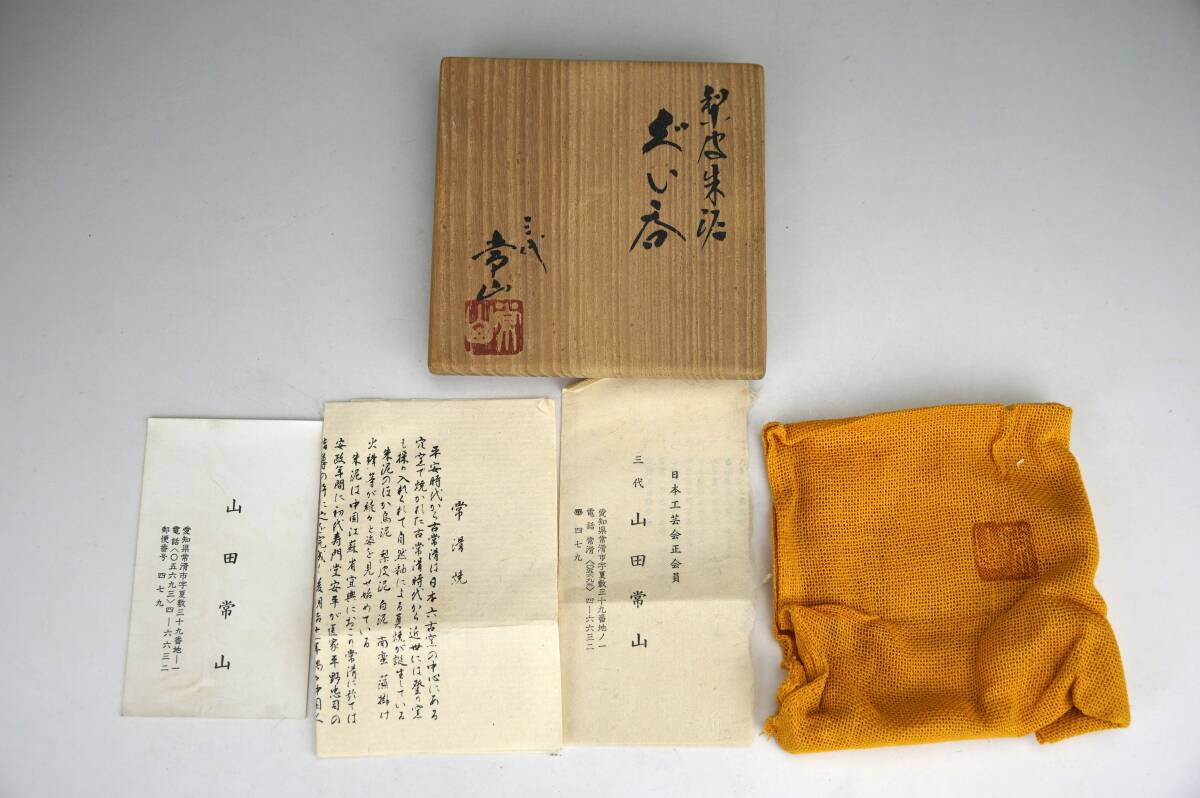 梨皮朱泥
ぐい呑
三代
常山
山田常山
愛知県常滑市字夏敷三十九番地ー一
電話〈〇五六九三〉四―六六三二
郵便番号 四七九
常滑焼
平安時代から古常滑は日本六古窯の中心にある
穴窯で焼かれた古常滑時代から近世には登り窯
も採り入れられて自然釉による真焼が誕生している
朱泥のほか烏泥 梨皮泥 白泥 南蛮 藻掛け
火襷等が続々と姿を見せ始めている
朱泥は中国江蘇省宜興におこり常滑に於ては
安政年間に初代寿門堂安平が医家平野忠司の
日本工芸会正会員
三代 山田常山
愛知県常滑市字夏敷三十九番地ノ一
電話 常滑〈〇五六九三〉四―六六三二
〒四七九